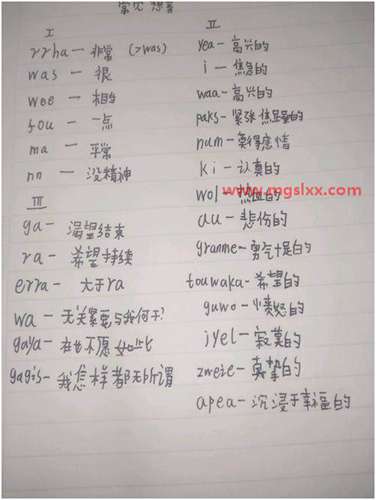 常见想音
I
rrha — 非常 (>was)
was — 很
wee — 相当
fou — 一点
ma — 平常
nn — 没精神
III
ga — 渴望结束
ra — 希望持续
erra — 大于ra
wa — 无关紧要与我何干?
gaya — 在也不愿如此
gagis — 我怎样都无所谓
II
yea — 高兴的
i — 焦急的
waa — 高兴的
paks — 紧张 焦虑的
num — 莫得感情
ki — 认真的
www.mgslxx.com
wol — 热血的
au — 悲伤的
granme — 勇气十足的
touwaka — 希望的
guwo — 愤怒的
jyel — 寂寞的
zweie — 真挚的
apea — 沉浸于幸福的